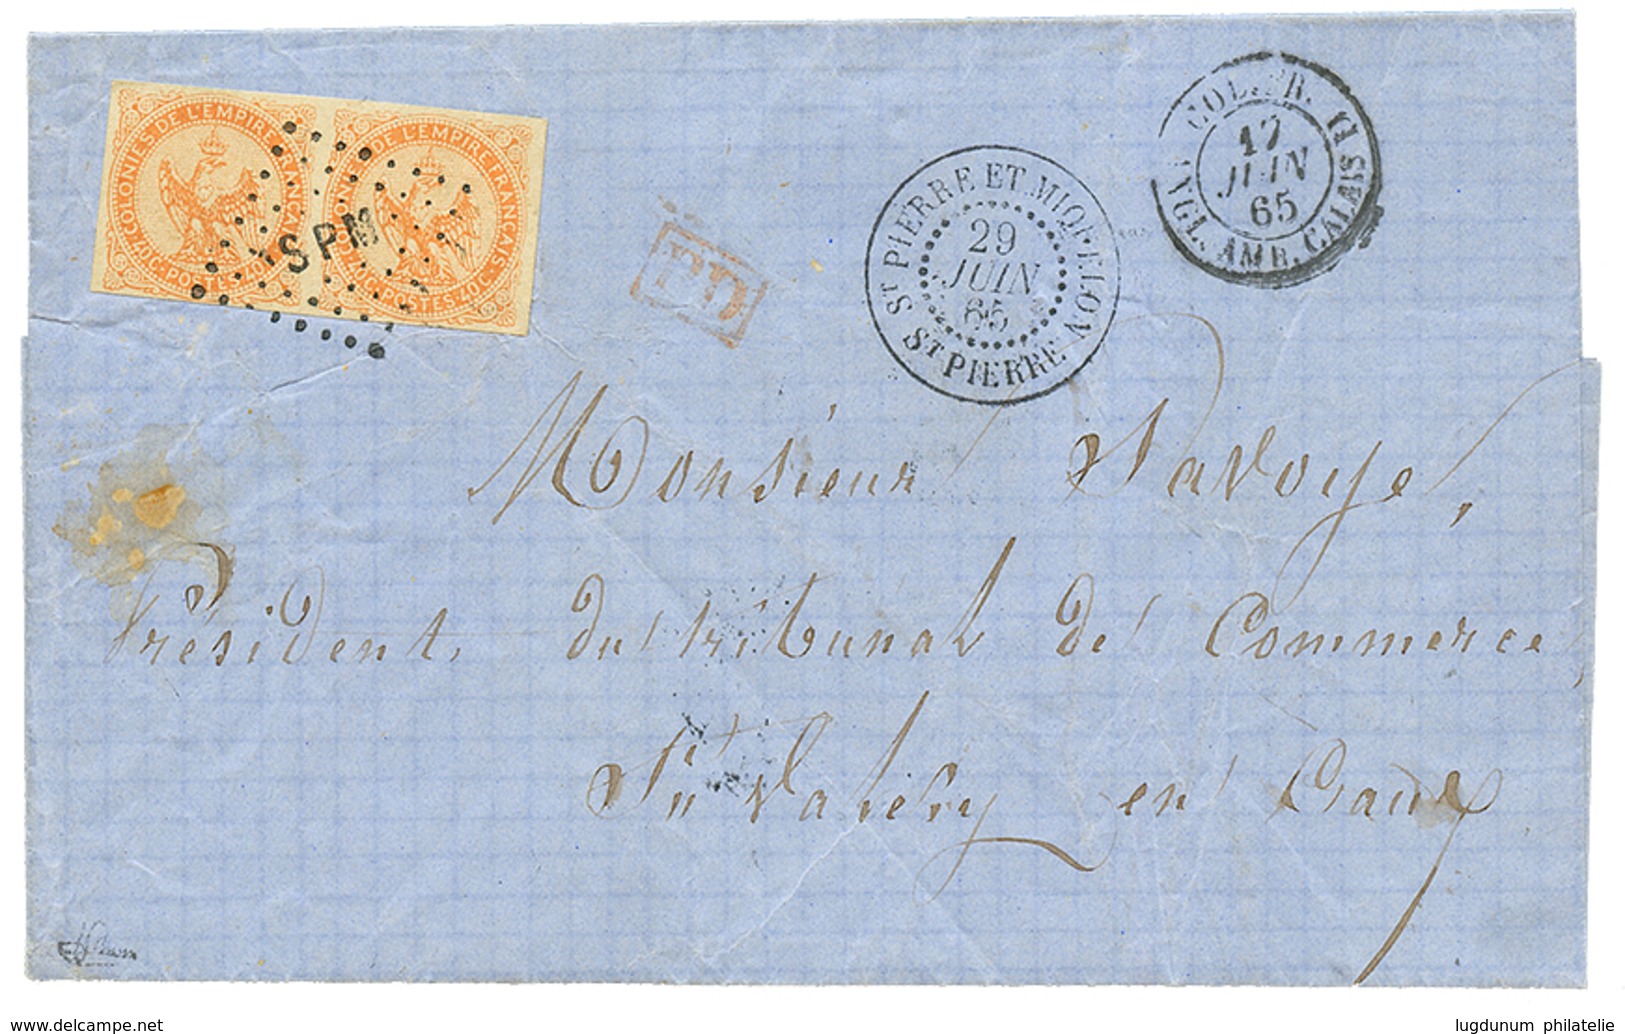 COLONIES DE L'EMPIRE FRANÇAIS
40C. POSTES. 40C.
DE L'EMPIRE FRANÇAIS
POSTES. 40C.
SPM
PD
ST PIERRE ET MIQUELON
29
JUIN
65
ST PIERRE
COL. FR.
17
JUIN
65
ANGL. AMB. CALAIS G
Monsieur Savoye,
Président, du tribunal de Commerce,
St Valery en Caux
www.delcampe.com
lugdunum philatelie